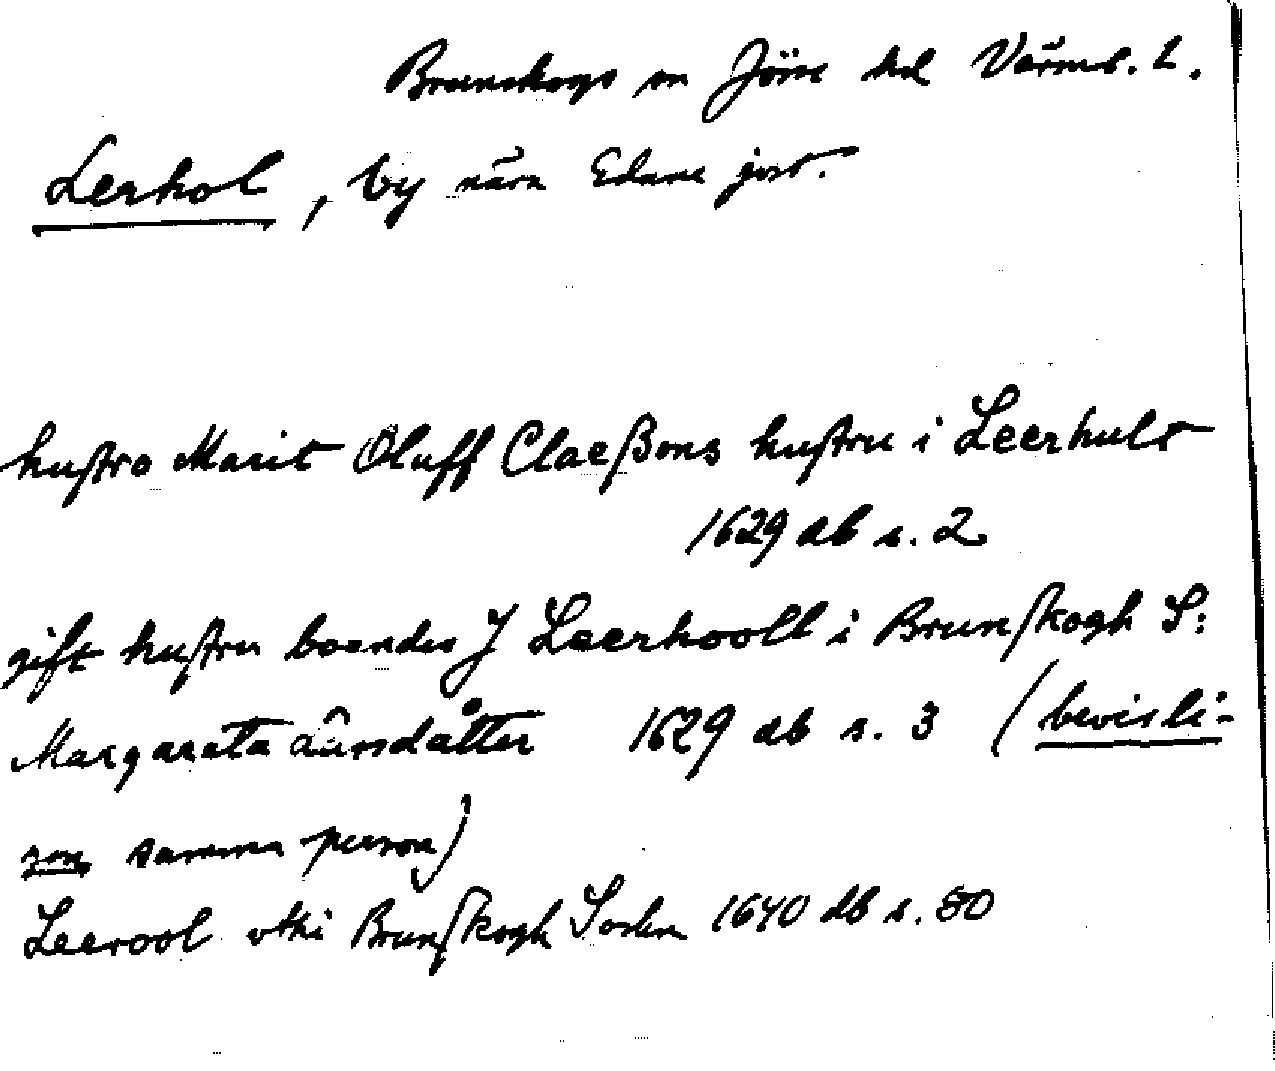 Brunskogs sn Jösse hd Värml. L.
Lerhol, by nära Edane jvst.
hustro Marit Oluff Claeßons hustru i Leerhult
1629 db s. 2
gift hustru boendes J Leerhooll i Brunskogh S:
Margareta Larsdåtter 1629 db s. 3 (bevisli-
gen samma person)
Leerool uthi Brunskogh Sochn 1640 db s. 50